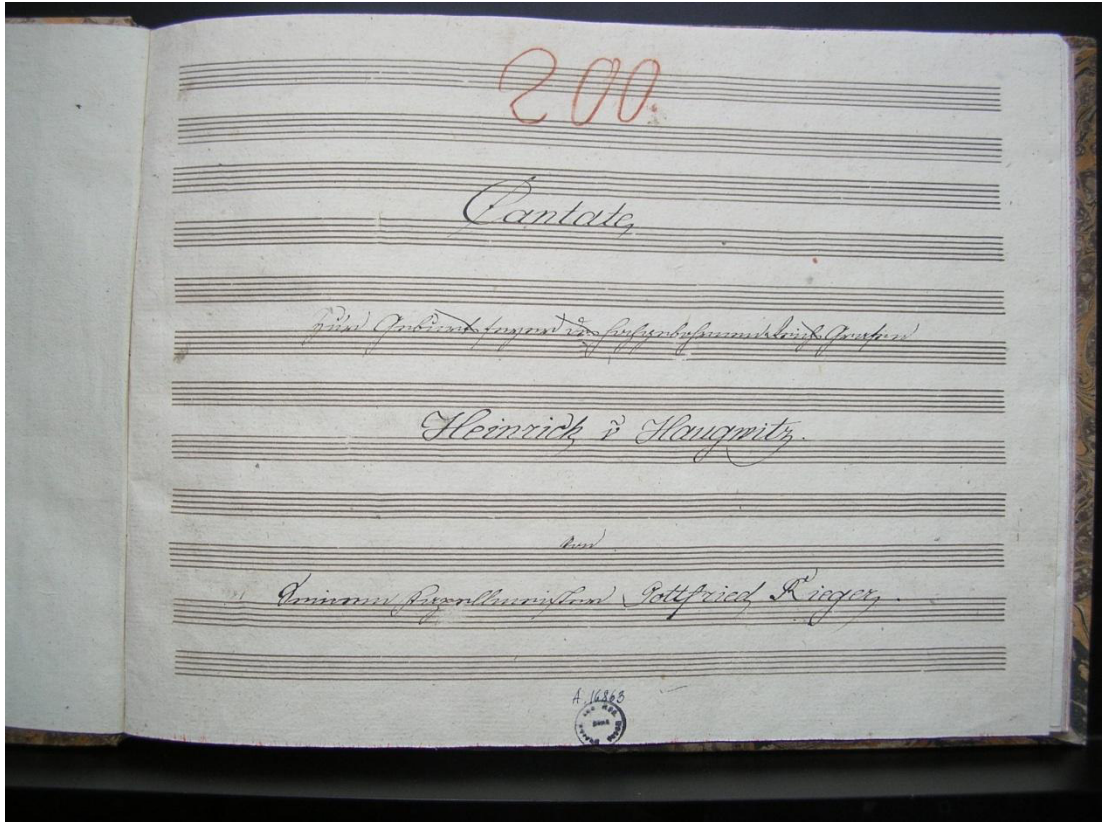 200.
Cantate,
Zur Geburtsfeyer des hochgebohrnen Grafen
Heinrich v Haugwitz.
von
Seinem Kapellmeister Gottfried Rieger,
A. 16863